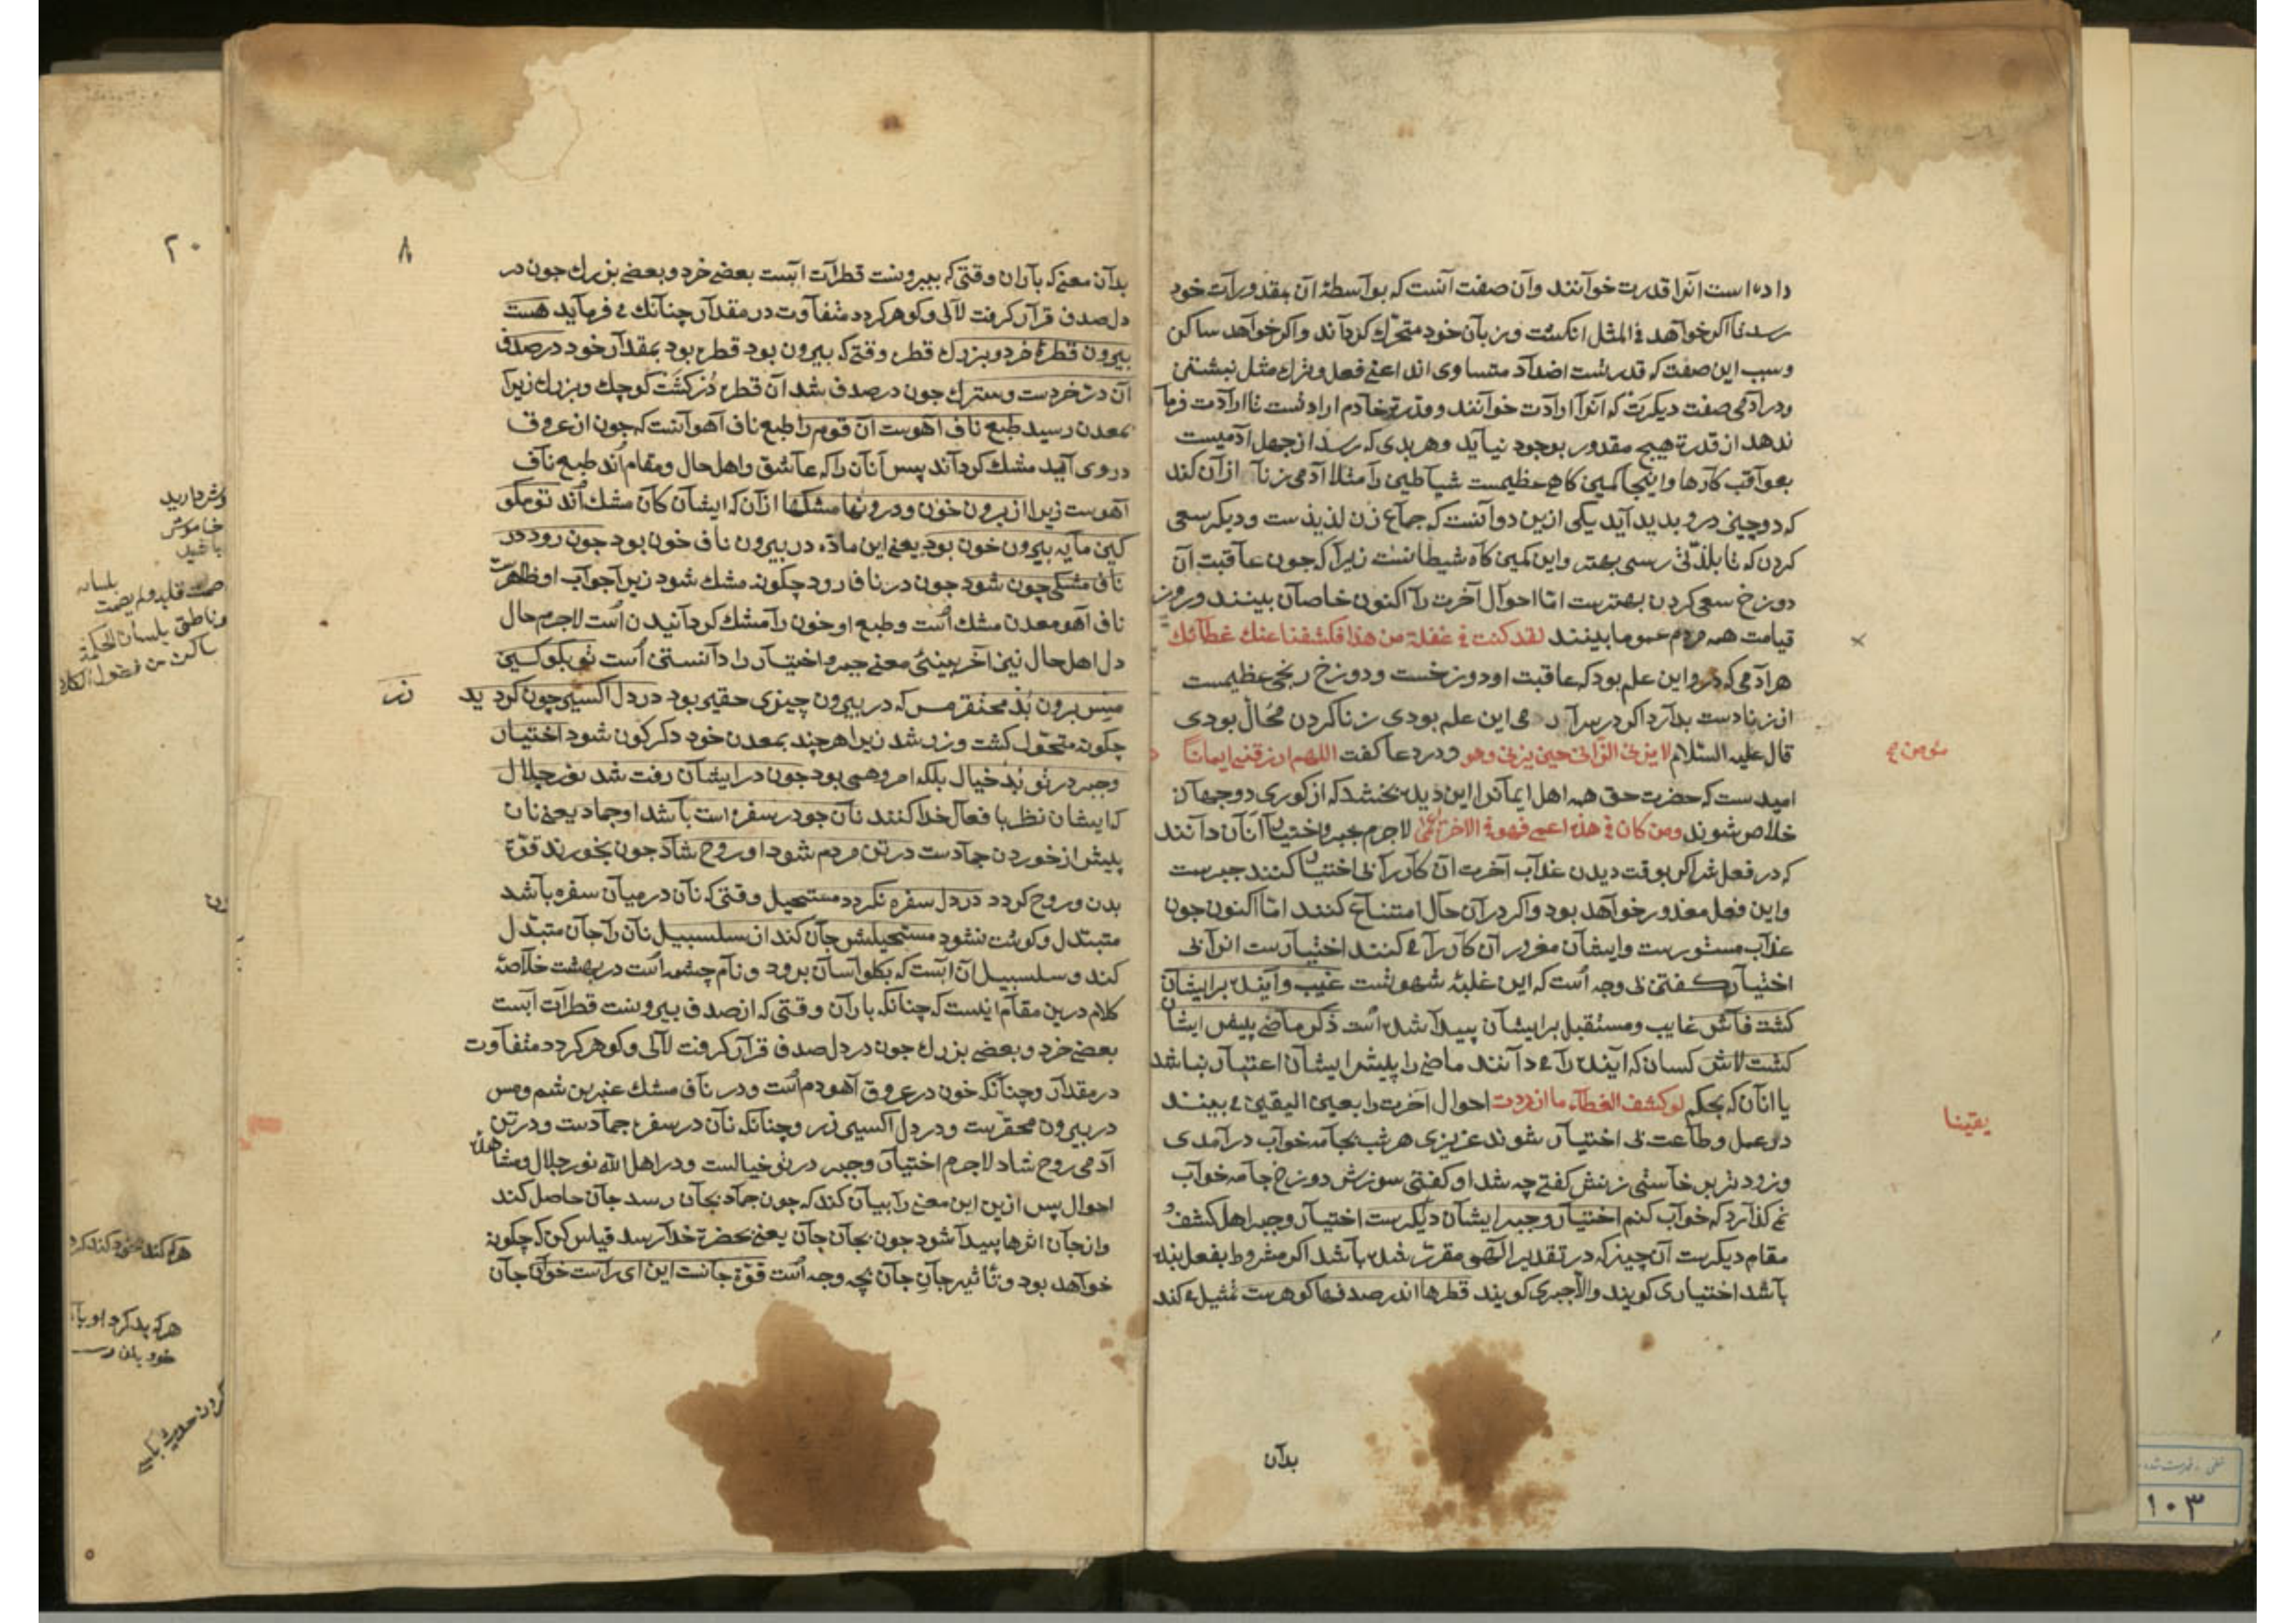 داده است انرا قدرت خوآنند وآن صفت آنست که بوآسطهٔ آن بمقدورآت خود
رسد تا اکر خوآهد فی المثل انکشت وزبآن خود متحرّك کردآند واکر خوآهد ساکن
وسبب این صفت که قدرتست اضدآد متساوی اند اعنی فعل وترك مثل نبشتنی
ودر آدمی صفت دیکرست که آنرا ارآدت خوآنند وقدرة خآدم ارادتست تا ارآدت فرمآ
ندهد از قدرة هیچ مقدور بوجود نیآید وهر بدی که رسد از جهل آدمیست
بعوآقب کآرها واینجا کمین کاهِ عظیمست شیآطین رآ مثلا آدمی زنآ ازآن کند
که دو چیز درو بدید آید یکی ازین دو آنست که جماع زن لذیذست ودیکر سعی
کردن که تا بلذّتی رسی بهتر واین کمین کآه شیطانست زیرآ که جون عآقبت آن
دوزخ سعی کردن بهترست امّا احوآل آخرت رآ اکنون خاصآن بینند وروز
قیامت همه مردم عموما بدینند لقد کنت فی غفلة من هذا فکشفنا عنك غطآئك
هر آدمی که درو این علم بود که عاقبت او دوزخست ودوزخ رنجی عظیمست
از زنا دست بدآرد اکر در هر آدمی این علم بودی زنا کردن مُحآل بودی
قآل علیه السّلام لا یزنی الزّانی حین یزنی وهو ودر دعا کفت اللهم ارزقنی ایمانًا
مؤمن
امیدست که حضرت حق همه اهل ایمآنرا این دیده بخشد که از کوری دو جهآن
خلاص شوند ومن کان فی هذه اعمی فهو فی الاخرة اعمی لاجرم بجبر واختیار آنآن دآنند
که در فعل شر اکر بوقت دیدن عذآب آخرت آن کآر رآ بی اختیار کنند جبرست
واین فعل معذور خوآهد بود واکر در آن حآل امتناع کنند امّا اکنون جون
عذآب مستورست وایشآن مغرور آن کآر رآ می کنند اختیآرست انرآ بی
اختیآر کفتن بی وجه است که این غلبهٔ شهوتست غیب وآینده برایشآن
کشت فآش غایب ومستقبل برایشآن پیدآ شده است ذکر ماضی پیش ایشآن
کشت لاش کسان که آینده رآ می دآنند ماضی را پلیش ایشآن اعتبآر نباشد
یا انآن که بحکم لو کشف الغطآء ما ازددت احوال آخرت را بعین الیقین می بینند
یقینا
در عمل وطآعت بی اختیآر شوند عزیزی هر شب بجآمه خوآب درآمدی
وزود تر بر خآستی زنش کفتی چه شد او کفتی سوزش دوزخ جآمه خوآب
نمی کذآرد که خوآب کنم اختیآر وجبر ایشآن دیکرست اختیآر وجبر اهل کشف و
مقام دیکرست آن چیز که در تقدیر الٓهی مقرّر شده بآشد اکر مشروط بفعل بنده
بآشد اختیآری کویند والّا جبری کویند قطرها اندر صدفها کوهرست تمثیل می کند
بدآن
٨
بدآن معنی که بآران وقتی که بیرونست قطرآت آبست بعضی خرد وبعضی بزرك جون در
دل صدف قرآر کرفت لآلی وکوهر کردد متفآوت در مقدآر چنآنك می فرمآید هست
بیرون قطرهٔ خرد وبزرك قطره وقتی که بیرون بود قطره بود بمقدآر خود در صدف
آن درّ خردست وسترك جون در صدف شد آن قطره دُر کشت کوچك وبزرك زیرآ
بمعدن رسید طبع ناف آهوست آن قوم را طبع ناف آهو آنست که جون از عروق
در وی آمد مشك کردآند پس آنآن را که عآشق واهل حال ومقام اند طبع نآف
آهوست زیرا از برون خون ودرونها مشکها ازآن که ایشان کآن مشك اند تو مکو
کین مآیه بیرون خون بود یعنی این مآدّه در بیرون ناف خون بود جون رود در
ناف مشکی چون شود جون در نافه رود چکونه مشك شود زیرآ جوآب او ظاهرست
ناف آهو معدن مشك است وطبع او خون رآ مشك کردآنیدن است لاجرم حال
دل اهل حال نیز آخر بینی معنی جبر واختیآر را دآنستن است تو بکو کین
مس برون بُد محتقر مس که در بیرون چیزی حقیر بود در دل اکسیر چون کردید
زر
چکونه متحوّل کشت وزر شد زیرا هر چند بمعدن خود دکرکون شود اختیآر
وجبر در تو بُد خیال بلکه امر وهمی بود جون در ایشآن رفت شد نور جلال
که ایشان نظر با فعآل خدا کنند نآن جو در سفره است بآشد او جماد یعنی نان
پلیش از خوردن جمآدست در تن مردم شود او روح شآد جون بخورند قوّة
بدن وروح کردد در دل سفره نکردد مستحیل وقتی که نآن در میآن سفره بآشد
متبتدل وکونت نشود مستحیلش جآن کند از سلسبیل نآن رآ جآن متبدّل
کند وسلسبیل آن آبست که بکلو آسان برود ونآم چشمه است در بهشت خلاصهٔ
کلام درین مقآم اینست که چنآنکه بارآن وقتی که از صدف بیرونست قطرآت آبست
بعضی خرد وبعضی بزرك جون در دل صدف قرآر کرفت لآلی وکوهر کردد متفآوت
در مقدآر وچنآنکه خون در عروق آهو دم است ودر نآف مشك عنبرین شم ومس
در بیرون محقّرست ودر دل اکسیر زر وچنآنکه نآن در سفره جمآدست ودر تن
آدمی روح شاد لاجرم اختیآر وجبر در تو خیالست ودر اهل الله نور جلال ومشاهده
احوال پس ازین این معنی را بیآن کند که جون جمآد بجآن رسد جآن حاصل کند
وازجآن اثرها پیدآ شود جون بجآن جآن یعنی بحضرة خدآ رسد قیاس کن که چکونه
خوآهد بود وتاثیر جآنِ جآن بچه وجه است قوّة جانست این ای رآست خوآن جآن
٢٠
خاموش
باشید
صمت قلبه ولم یصمت
بلسانه
وناطق بلسان الحکمة
ساکت من فضول الکلام
هر که بد کرد
١٠٣